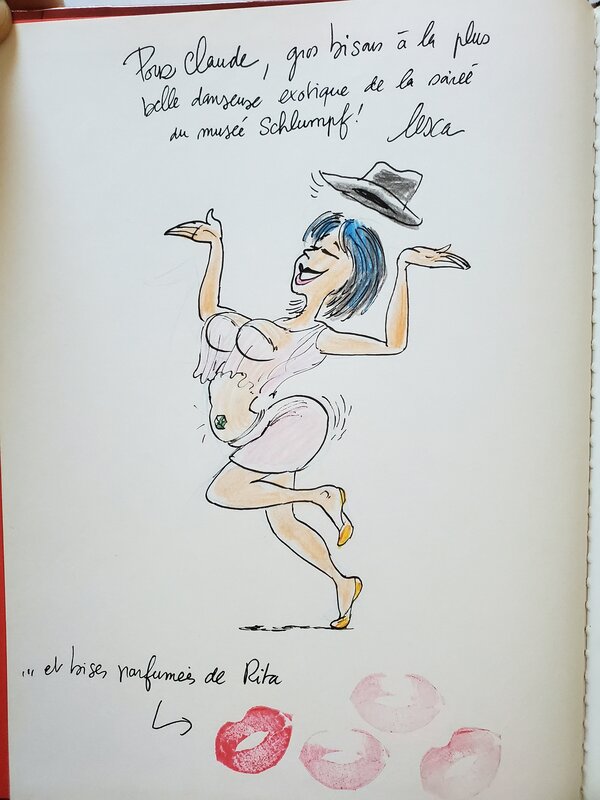 Pour Claude, gros bisous à la plus
belle danseuse exotique de la soirée
du musée Schlumpf! Lesca
... et bises parfumées de Rita